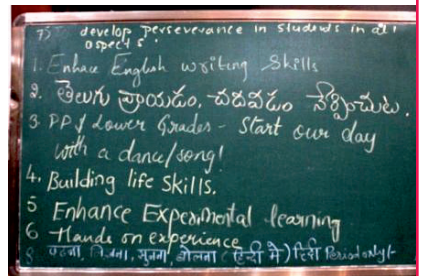 7) develop perseverance in students in all
aspects.
1. Enhace English writing Skills
2. తెలుగు వ్రాయడం, చదవడం నేర్పించుట.
3. PP/Lower Grades - Start our day
with a dance/song!
4. Building life Skills.
5 Enhance Experimental learning
6 Hands on experience
8. पढना, लिखना, सुनना, बोलना (हिन्दी मे) हिंदी Period only